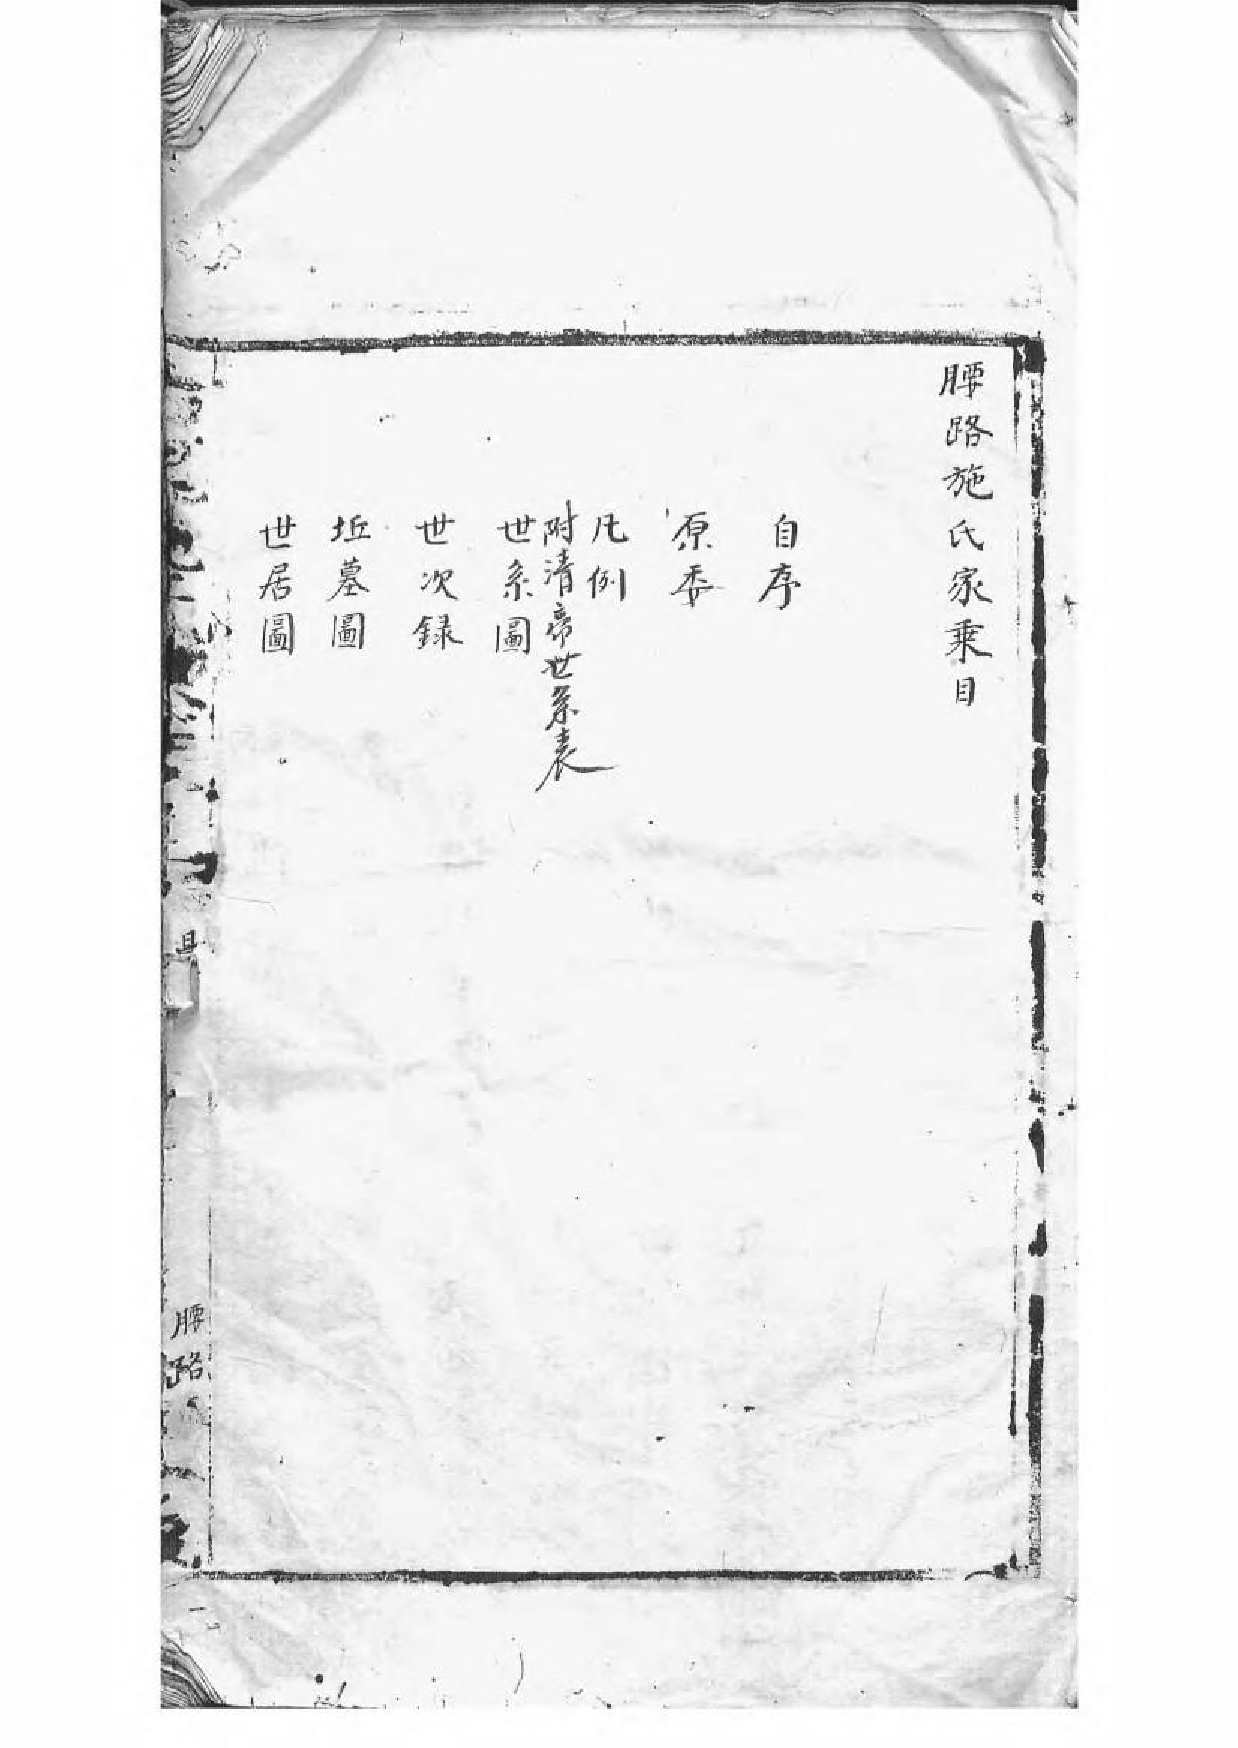 腰路施氏家乘目
自序
原委
凡例
附清帝世系表
世系圖
世次録
坵墓圖
世居圖
目
腰路